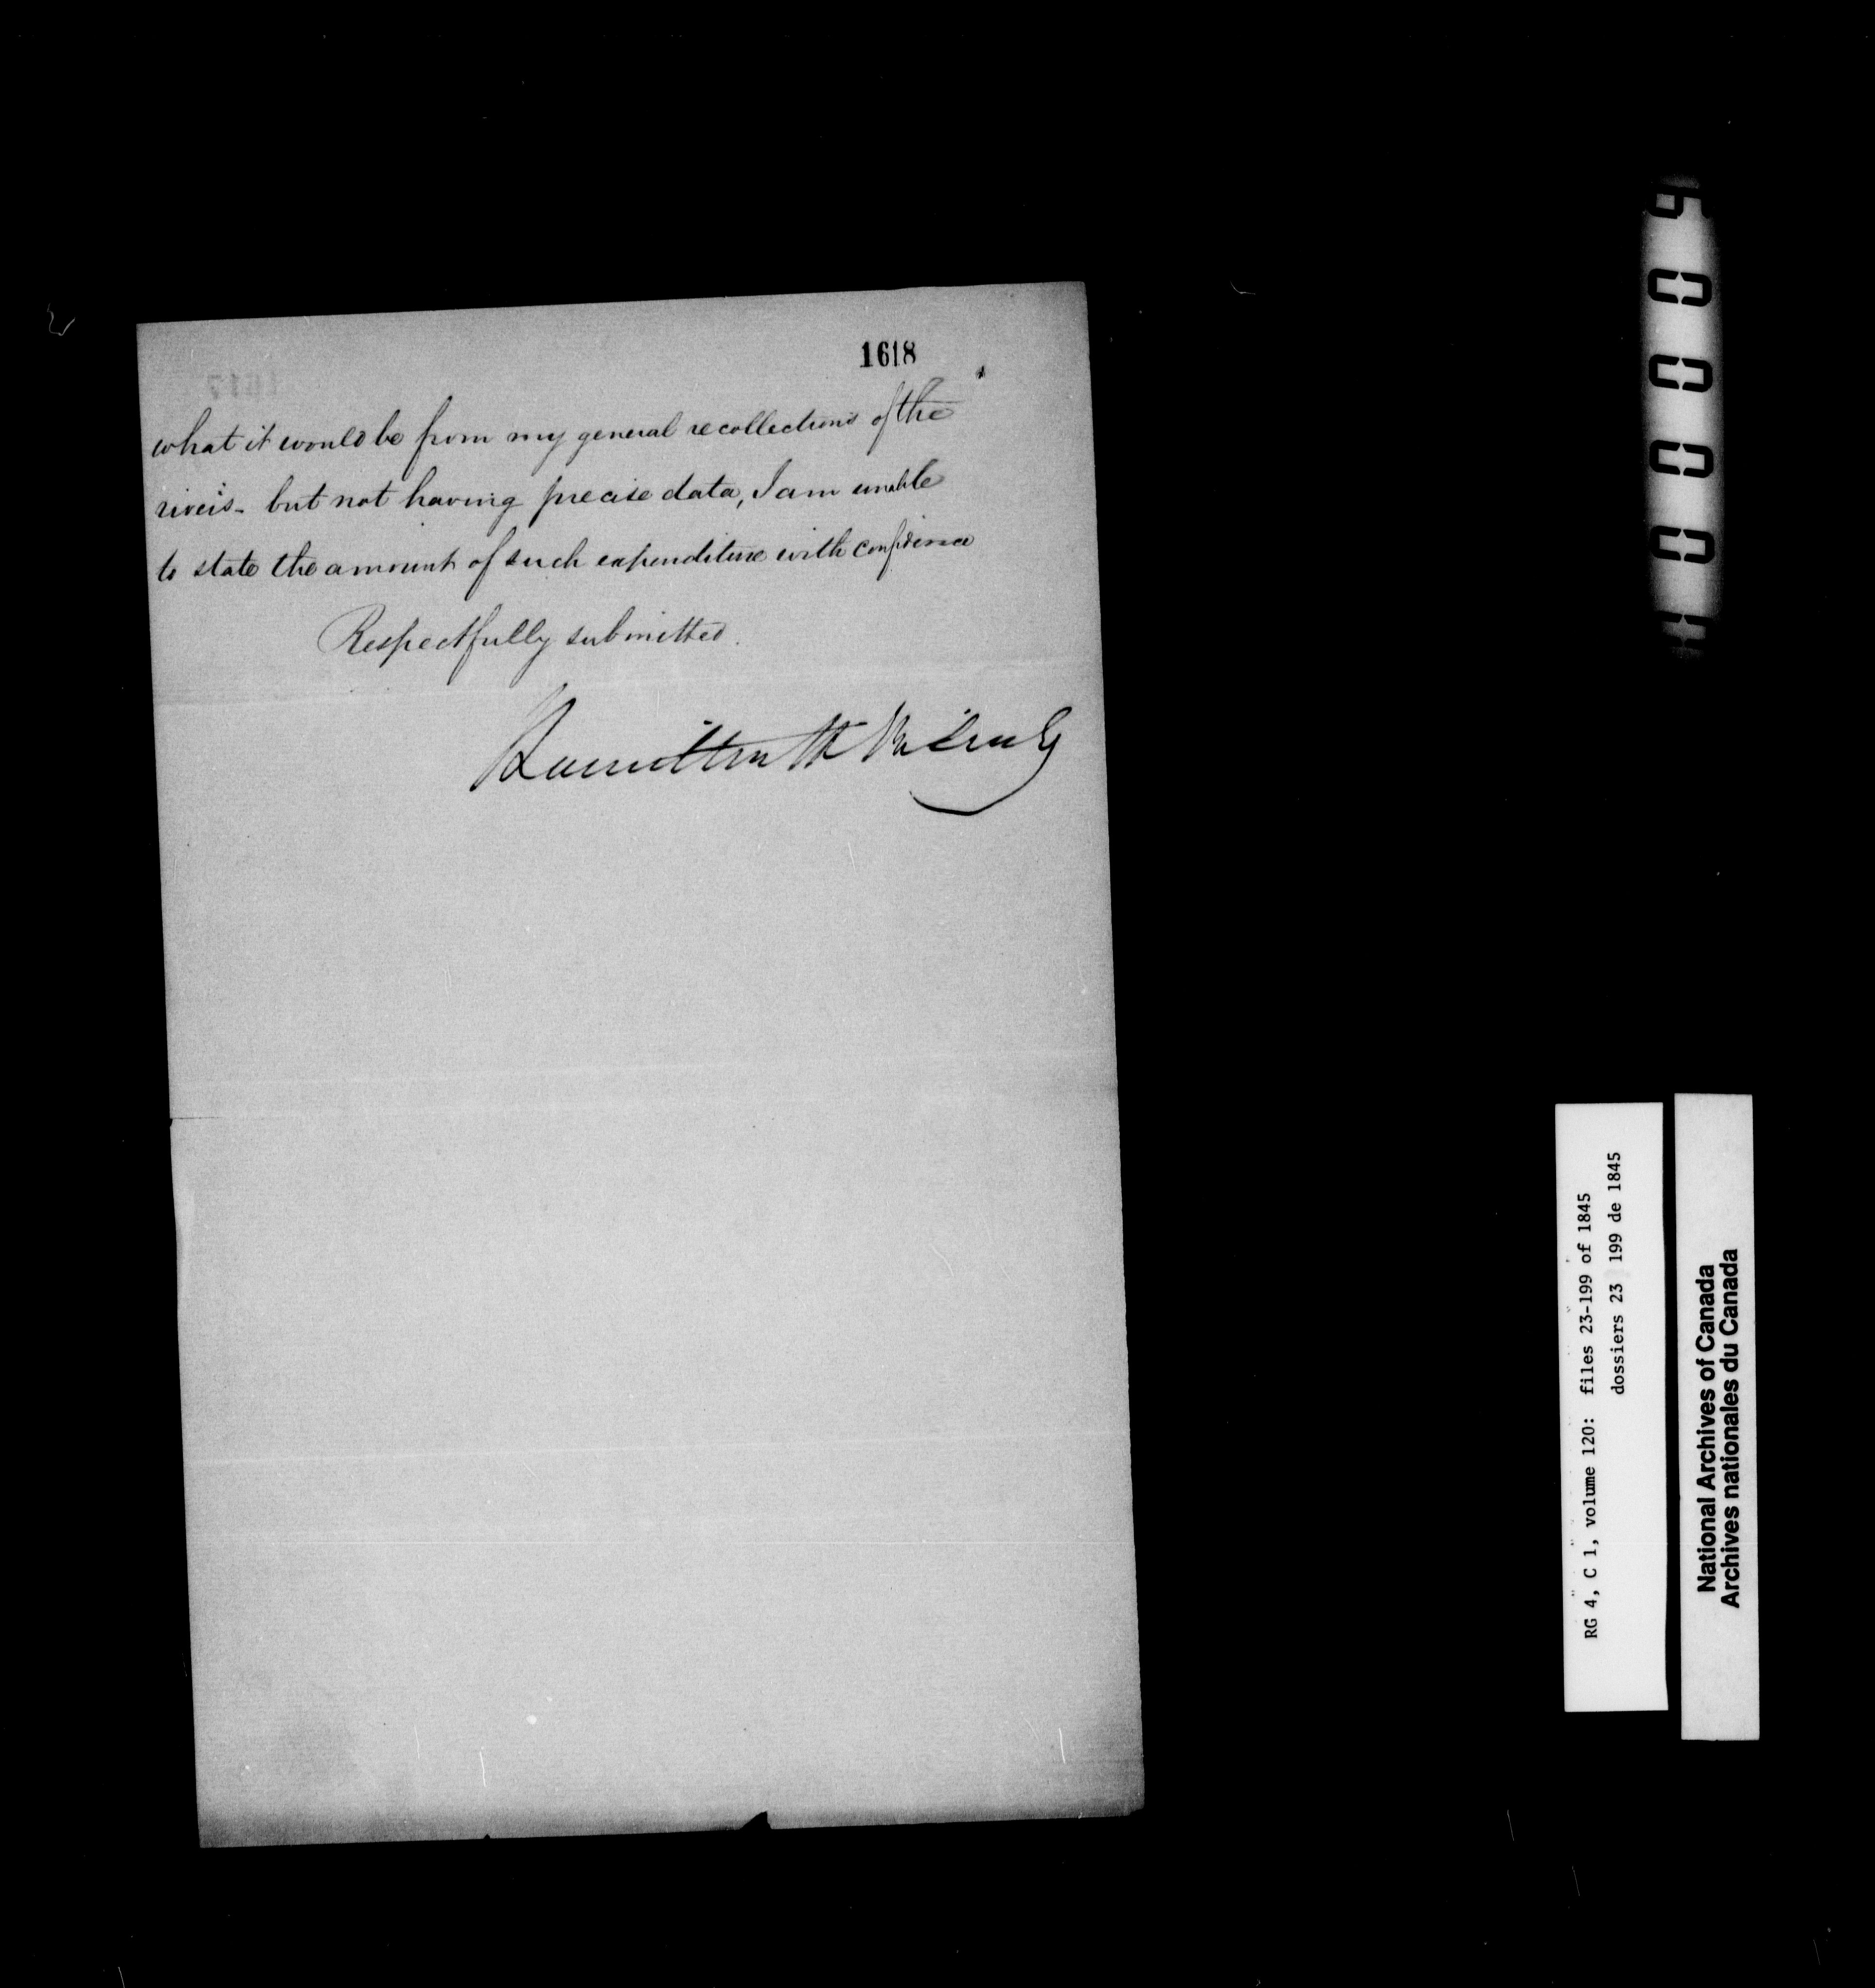 1618
what it would be from my general recollections of the
rivers - but not having precise data, I am unable
to state the amount of such expenditure with confidence
Respectfully submitted.
Hamilton H Killaly
RG 4, C 1, volume 120: files 23-199 of 1845
dossiers 23 199 de 1845
National Archives of Canada
Archives nationales du Canada